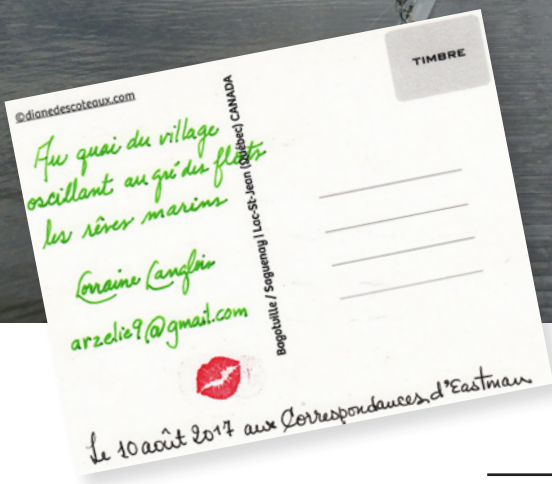 ©dianedescoteaux.com
TIMBRE
Au quai du village
oscillant au gré des flots
les rêves marins
Lorraine Langlois
arzelie9@gmail.com
Bagotville / Saguenay / Lac-St-Jean (Québec) CANADA
Le 10 août 2017 aux Correspondances d'Eastman